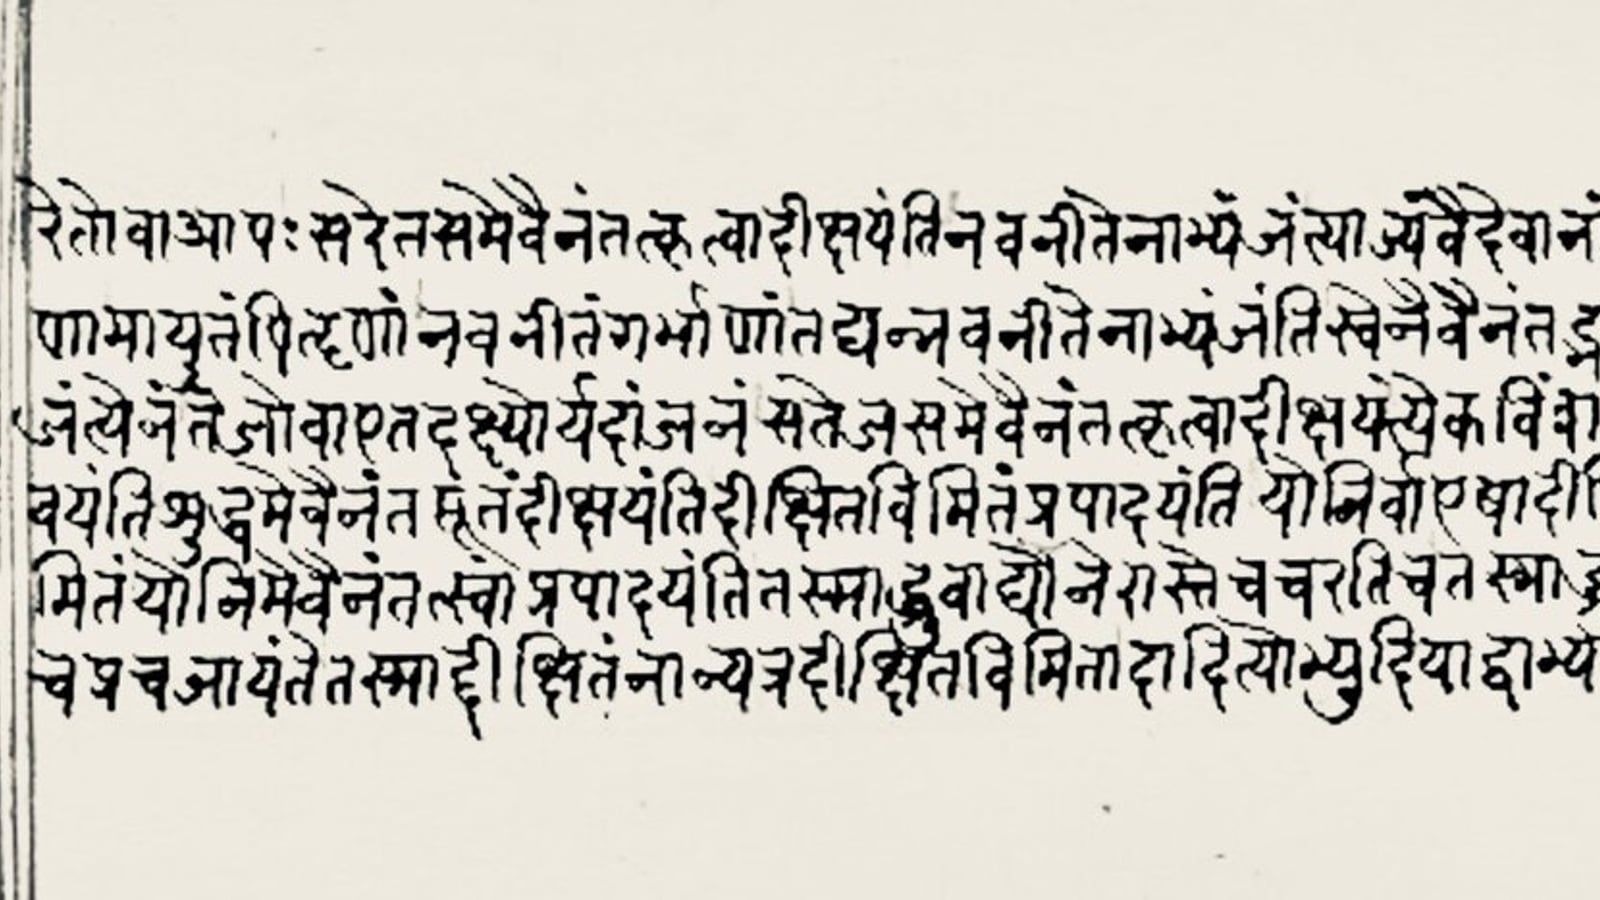 रेतोवाआपःसरेतसमेवैनंतत्कृत्वादीक्षयंतिनवनीतेनाभ्यंजंत्याज्यंवैदेवानां
णामायुतंपितॄणांनवनीतंगर्भाणांतद्यन्नवनीतेनाभ्यंजंतिस्वेनैवैनंतद्भा
जंत्येनंतेजोवाएतदक्ष्योर्यदांजनंसतेजसमेवैनंतत्कृत्वादीक्षयंत्येकविंशा
वयंतिशुद्धमेवैनंतत्पूतंदीक्षयंतिदीक्षितविमितंप्रपादयंतियोनिर्वाएषादी
मितंयोनिमेवैनंतत्स्वांप्रपादयंतितस्माद्ध्रुवाद्योनेरास्तेचचरतिचतस्माद्ध्रु
चप्रचजायंतेतस्माद्दीक्षितंनान्यत्रदीक्षितविमितादादित्योभ्युदियाद्वाभ्य